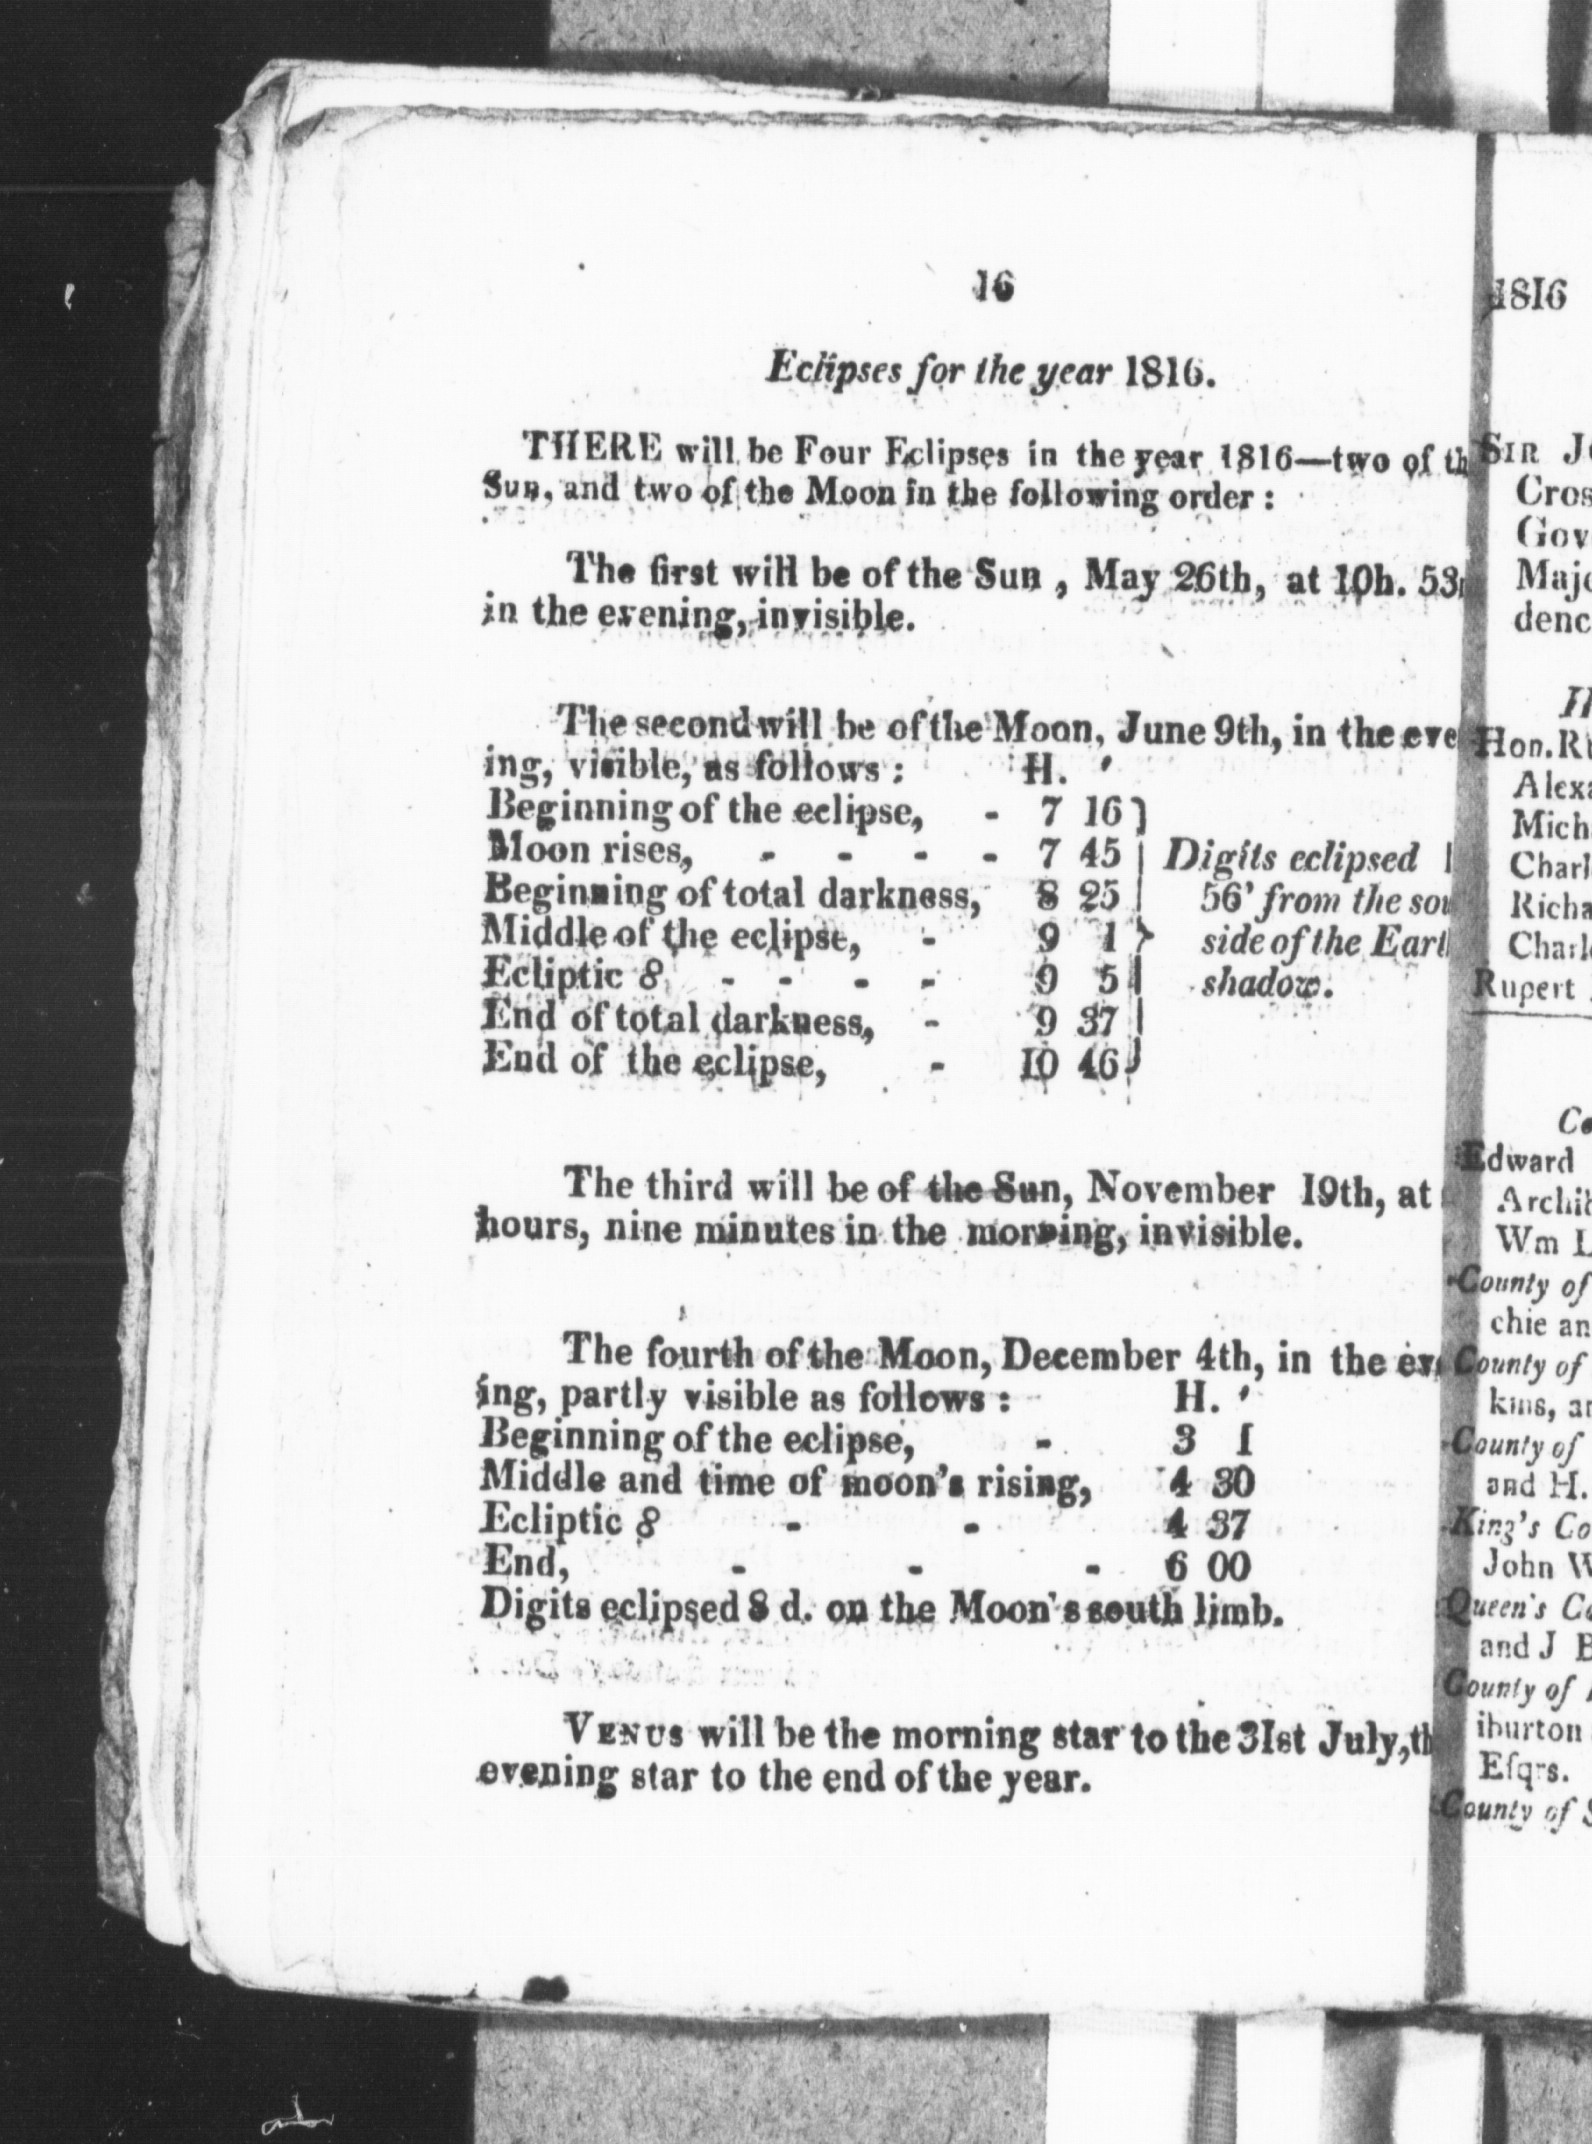 16
Eclipses for the year 1816.
THERE will be Four Eclipses in the year 1816—two of th
Sun, and two of the Moon in the following order :
The first will be of the Sun , May 26th, at 10h. 53
in the evening, invisible.
The second will be of the Moon, June 9th, in the eve
ing, visible, as follows : H. '
Beginning of the eclipse, - 7 16
Moon rises, - - - - 7 45
Beginning of total darkness, 8 25
Middle of the eclipse, - 9 1
Ecliptic ☍ - - - - 9 5
End of total darkness, - 9 37
End of the eclipse, - 10 46
Digits eclipsed
56' from the sou
side of the Eart
shadow.
The third will be of the Sun, November 19th, at
hours, nine minutes in the morning, invisible.
The fourth of the Moon, December 4th, in the eve
ing, partly visible as follows : H. '
Beginning of the eclipse, - 3 1
Middle and time of moon's rising, 4 30
Ecliptic ☍ - - 4 37
End, - - - 6 00
Digits eclipsed 8 d. on the Moon's south limb.
VENUS will be the morning star to the 31st July, th
evening star to the end of the year.
1816
SIR J
Cros
Gov
Maje
denc
H
Hon. Ri
Alexa
Mich
Charl
Richa
Charle
Rupert
Co
Edward
Archib
Wm L
County of
chie an
County of
kins, an
County of
and H.
King's Co
John W
Queen's Co
and J B
County of
iburton
Esqrs.
County of S